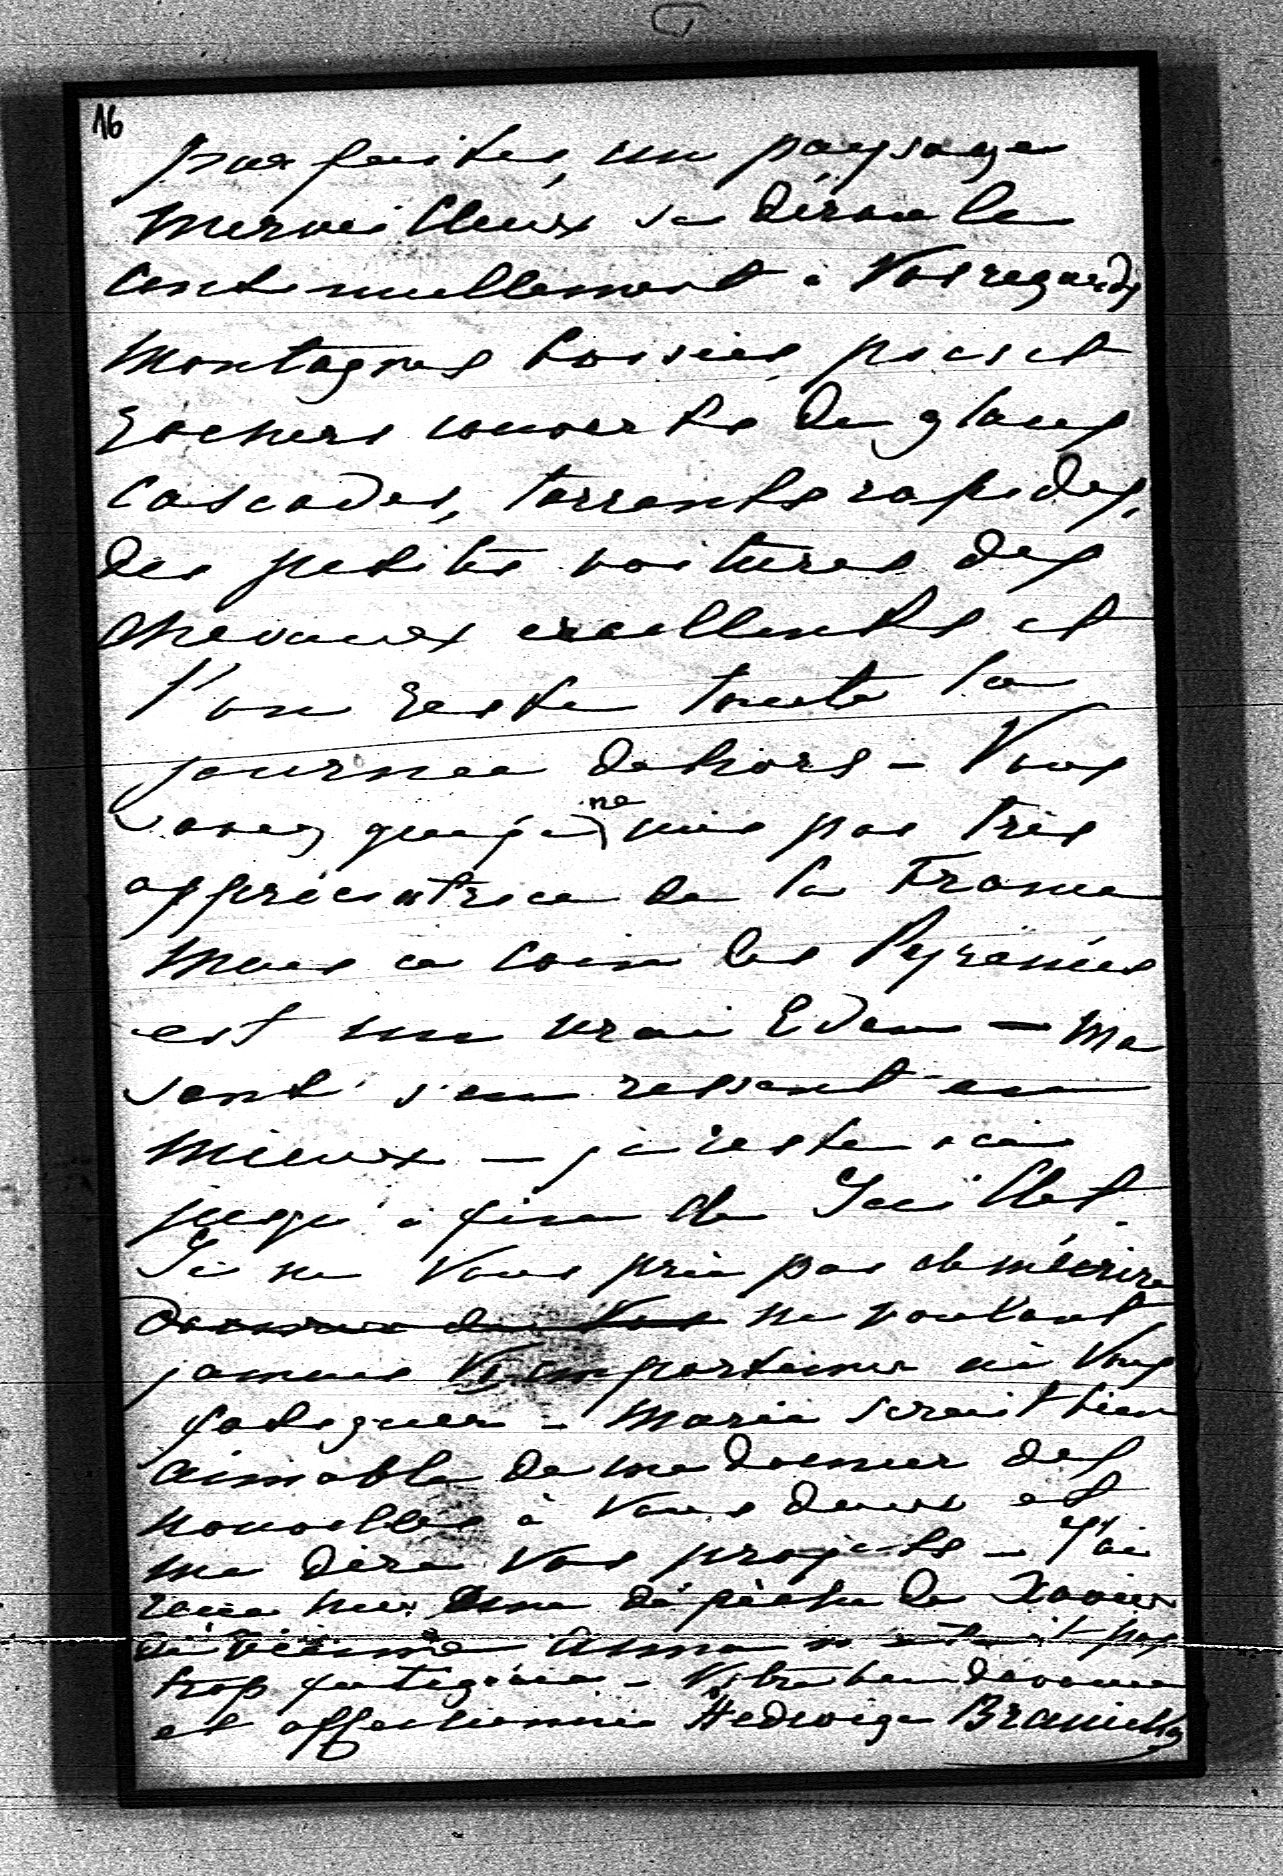 16
parfaites, un paysage
merveilleux se déroule
continuellement à Vos regards
Montagnes boisées, pics et
Rochers couverts de glace
Cascades, torrents rapides,
des petites voitures des
chevaux excellents et
l'on reste toute la
journée dehors – Vous
savez que je ne suis pas très
appréciatrice de la France
mais ce coin des Pyrénées
est un vrai Eden – Ma
santé s'en ressent en
mieux – je reste ici
jusqu'à fin de Juillet
Je ne Vous prie pas de m'écrire
ne voulant
jamais Vs importuner ni Vous
fatiguer – Marie serait bien
aimable de me donner des
nouvelles à Vous deux et
me dire Vos projets – J'ai
reçu une dépêche de Xavier
de Vienne Anna n'était pas
trop fatiguée – Votre bien dévouée
et affectionnée Hedwige Branicka